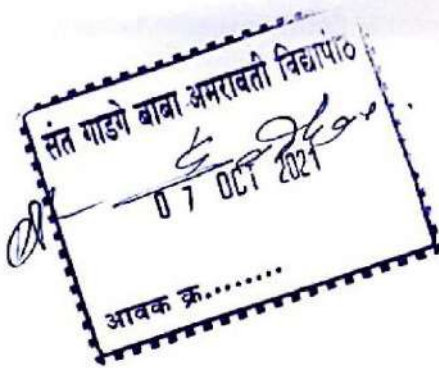 संत गाडगे बाबा अमरावती विद्यापी०
0 7 OCT 2021
आवक क्र........